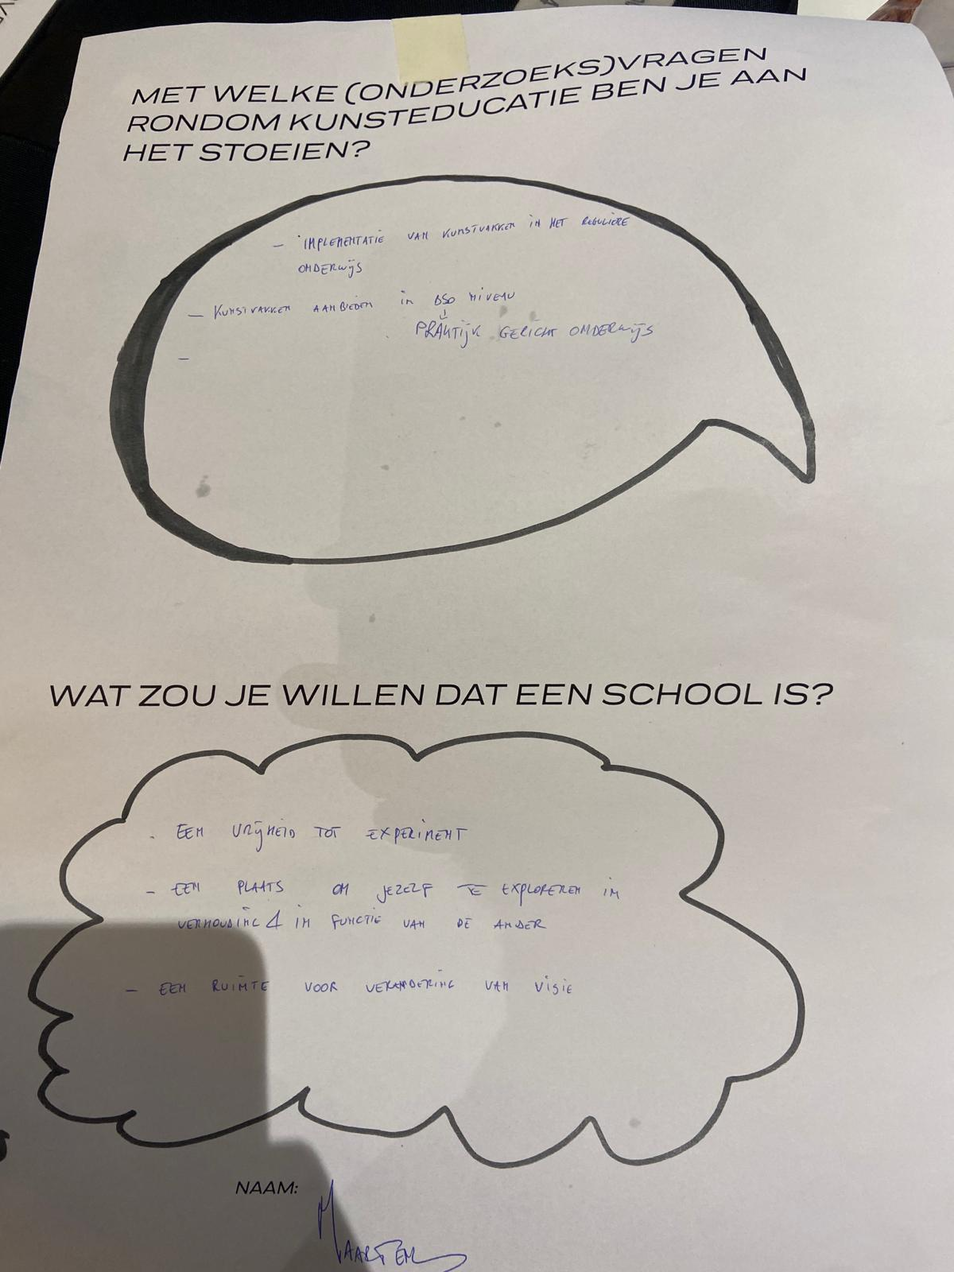 MET WELKE (ONDERZOEKS)VRAGEN
RONDOM KUNSTEDUCATIE BEN JE AAN
HET STOEIEN?
- IMPLEMENTATIE VAN KUNSTVAKKEN IN HET REGULIERE
ONDERWIJS
- KUNSTVAKKEN AANBIEDEN IN BSO NIVEAU
↓
PRAKTIJK GERICHT ONDERWIJS
-
WAT ZOU JE WILLEN DAT EEN SCHOOL IS?
- EEN VRIJHEID TOT EXPERIMENT
- EEN PLAATS OM JEZELF TE EXPLOREREN IN
VERHOUDING & IN FUNCTIE VAN DE ANDER
- EEN RUIMTE VOOR VERANDERING VAN VISIE
NAAM:
MAARTEN